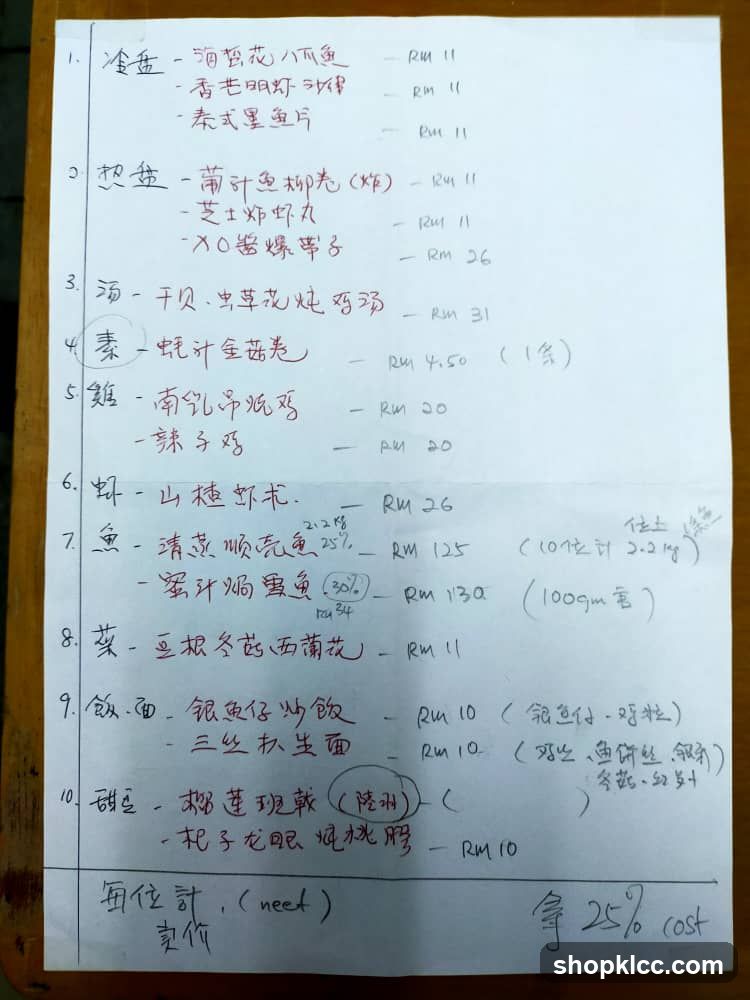 1. 冷盘 - 海蜇花八爪鱼 - RM 11
- 香芒明虾沙律 - RM 11
- 泰式墨鱼片 - RM 11
2. 热盘 - 葡汁鱼柳卷(炸) - RM 11
- 芝士炸虾丸 - RM 11
- XO酱爆带子 - RM 26
3. 汤 - 干贝.虫草花炖鸡汤 - RM 31
4. 素 - 蚝汁金菇卷 - RM 4.50 (1条)
5. 雞 - 南乳吊烧鸡 - RM 20
- 辣子鸡 - RM 20
6. 虾 - 山楂虾球. - RM 26
2.2kg 位上
7. 魚 - 清蒸顺壳魚 25% - RM 125 (10位計 2.2kg)
- 蜜汁焗雪魚 (30%) - RM 130 (100gm)
RM 34
8. 菜 - 豆根冬菇西兰花 - RM 11
9. 飯.面 - 銀魚仔炒飯 - RM 10 (銀魚仔.鸡粒)
- 三丝扒生面 - RM 10 (鸡丝.魚饼丝.銀芽)
冬菇.
10. 甜豆 - 榴莲班戟 (陸羽) - ( )
- 杞子龙眼炖桃膠 - RM 10
每位計.(neet)
卖价
拿 25% cost
shopklcc.com